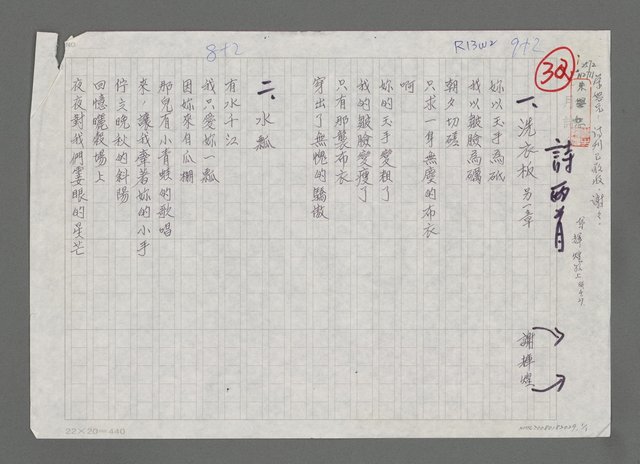 8+2
R13W2 9+2
38
詩兩首
謝輝煌
一、洗衣板 另一章
妳以玉手為砥
我以皺臉為礪
朝夕切磋
只求一身無塵的布衣
啊
妳的玉手變粗了
我的皺臉變瘦了
只有那襲布衣
穿出了無愧的驕傲
二、水瓢
有水千江
我只愛妳一瓢
因妳來自瓜棚
那兒有小青蛙的歌唱
來，讓我牽著妳的小手
佇立晚秋的斜陽
回憶曬穀場上
夜夜對我們霎眼的星芒
22×20=440